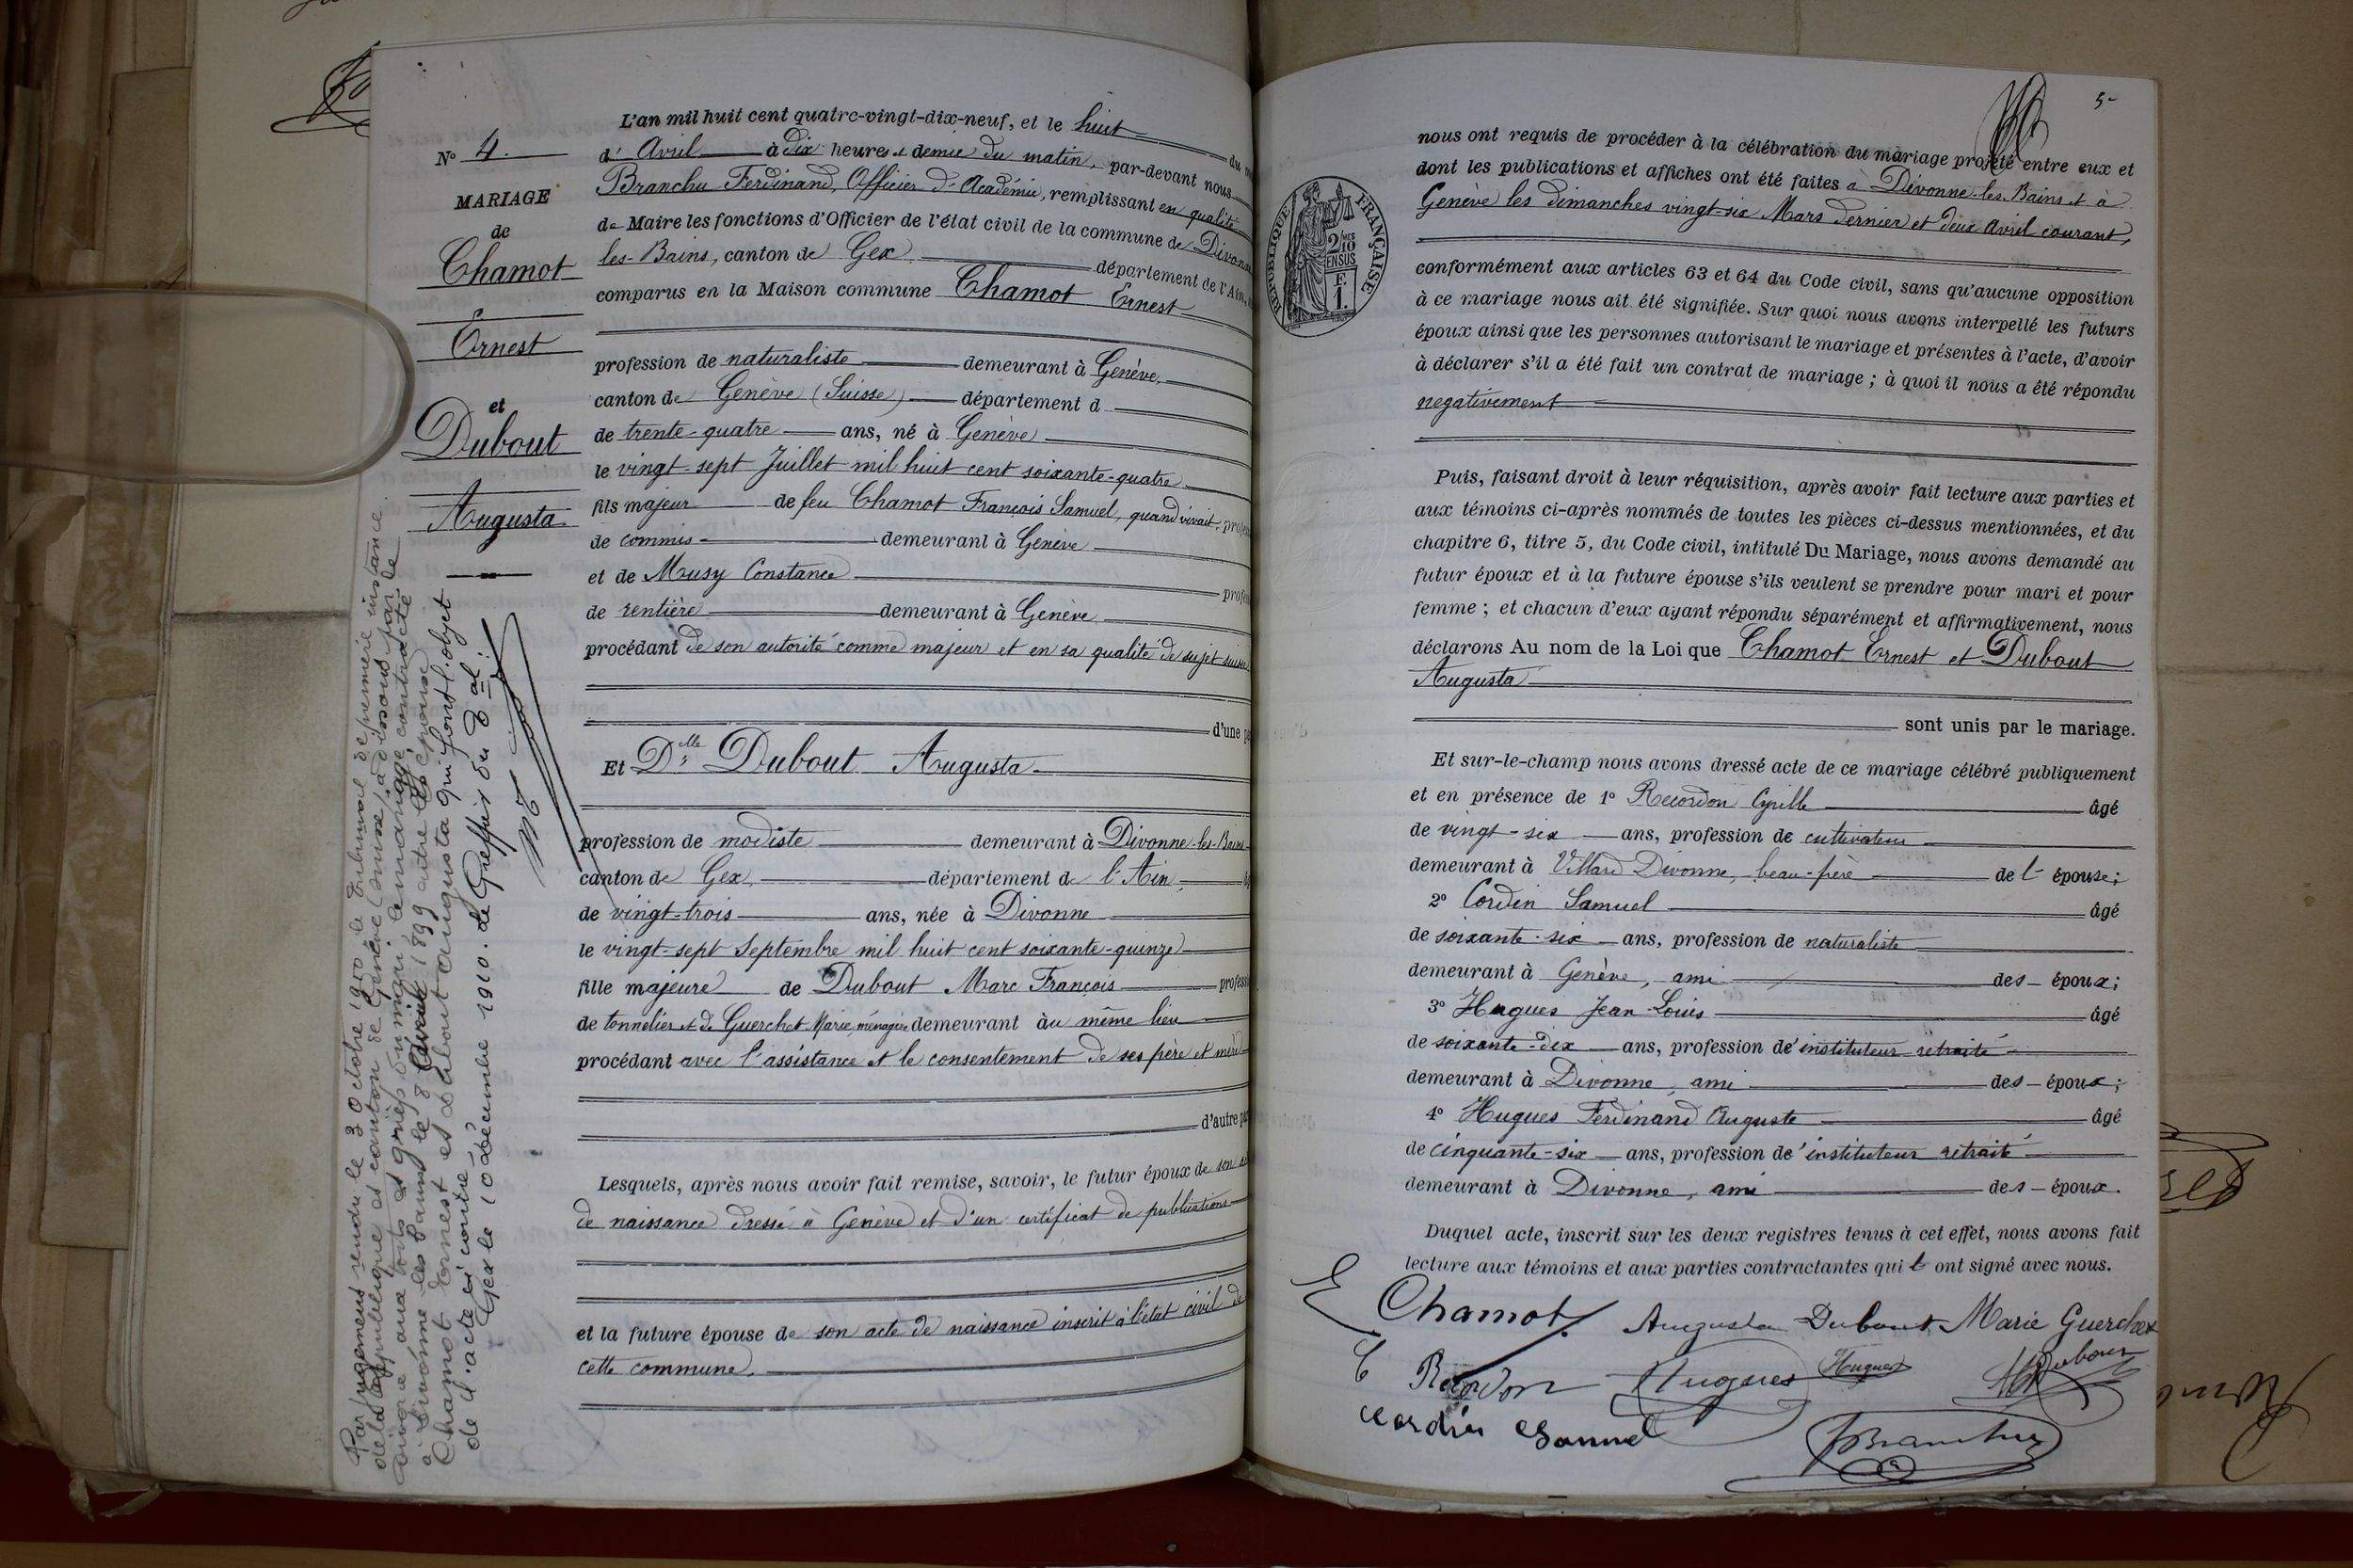 N° 4.
MARIAGE
de
Chamot
Ernest
et
Dubout
Augusta
Par jugement rendu le 3 octobre 1910 le tribunal de première instance
de la République et canton de Genève (Suisse) a dissous par le
divorce aux torts et griefs du mari le mariage contracté
à Divonne-les-Bains le 8 Avril 1899 entre les époux
Chamot Ernest et Dubout Augusta qui font l'objet
de l'acte ci contre
Gex le 10 décembre 1910. Le Greffier du Tal:
L'an mil huit cent quatre-vingt-dix-neuf, et le huit du
d'Avril à dix heures et demie du matin, par-devant nous
Branchu Ferdinand, Officier d'Académie, remplissant en qualité
de Maire les fonctions d'Officier de l'état civil de la commune de Divonne
les-Bains, canton de Gex département de l'Ain,
comparus en la Maison commune Chamot Ernest
profession de naturaliste demeurant à Genève,
canton de Genève (Suisse) département d
de trente-quatre ans, né à Genève
le vingt-sept Juillet mil huit cent soixante-quatre
fils majeur de feu Chamot François Samuel, quand vivait,
de commis demeurant à Genève
et de Musy Constance
de rentière demeurant à Genève
procédant de son autorité comme majeur et en sa qualité de sujet suisse
d'une
Et Dlle Dubout Augusta
profession de modiste demeurant à Divonne-les-Bains
canton de Gex, département de l'Ain,
de vingt-trois ans, née à Divonne
le vingt-sept Septembre mil huit cent soixante-quinze
fille majeure de Dubout Marc François
de tonnelier et de Guerchet Marie, ménagère demeurant au même lieu
procédant avec l'assistance et le consentement de ses père et mère
d'autre
Lesquels, après nous avoir fait remise, savoir, le futur époux de son
de naissance dressé à Genève et d'un certificat de publications
et la future épouse de son acte de naissance inscrit à l'état civil de
cette commune.
5
nous ont requis de procéder à la célébration du mariage projeté entre eux et
dont les publications et affiches ont été faites à Divonne-les-Bains et à
Genève les dimanches vingt-six Mars dernier et deux Avril courant,
RÉPUBLIQUE FRANÇAISE
2/10
EN SUS
F.
1.
conformément aux articles 63 et 64 du Code civil, sans qu'aucune opposition
à ce mariage nous ait été signifiée. Sur quoi nous avons interpellé les futurs
époux ainsi que les personnes autorisant le mariage et présentes à l'acte, d'avoir
à déclarer s'il a été fait un contrat de mariage ; à quoi il nous a été répondu
négativement
Puis, faisant droit à leur réquisition, après avoir fait lecture aux parties et
aux témoins ci-après nommés de toutes les pièces ci-dessus mentionnées, et du
chapitre 6, titre 5, du Code civil, intitulé Du Mariage, nous avons demandé au
futur époux et à la future épouse s'ils veulent se prendre pour mari et pour
femme ; et chacun d'eux ayant répondu séparément et affirmativement, nous
déclarons Au nom de la Loi que Chamot Ernest et Dubout
Augusta
sont unis par le mariage.
Et sur-le-champ nous avons dressé acte de ce mariage célébré publiquement
et en présence de 1° Recordon Cyrille âgé
de vingt-six ans, profession de cultivateur
demeurant à Villard Divonne, beau-frère de l'épouse;
2° Cordin Samuel âgé
de soixante-six ans, profession de naturaliste
demeurant à Genève, ami des époux;
3° Hugues Jean-Louis âgé
de soixante-dix ans, profession de' instituteur retraité
demeurant à Divonne, ami des époux;
4° Hugues Ferdinand Auguste âgé
de cinquante-six ans, profession de' instituteur retraité
demeurant à Divonne, ami des époux.
Duquel acte, inscrit sur les deux registres tenus à cet effet, nous avons fait
lecture aux témoins et aux parties contractantes qui ont signé avec nous.
E Chamot. Augusta Dubout Marie Guerchet
C Recordon Hugues Hugues Dubout
Cordin Samuel FBranchu